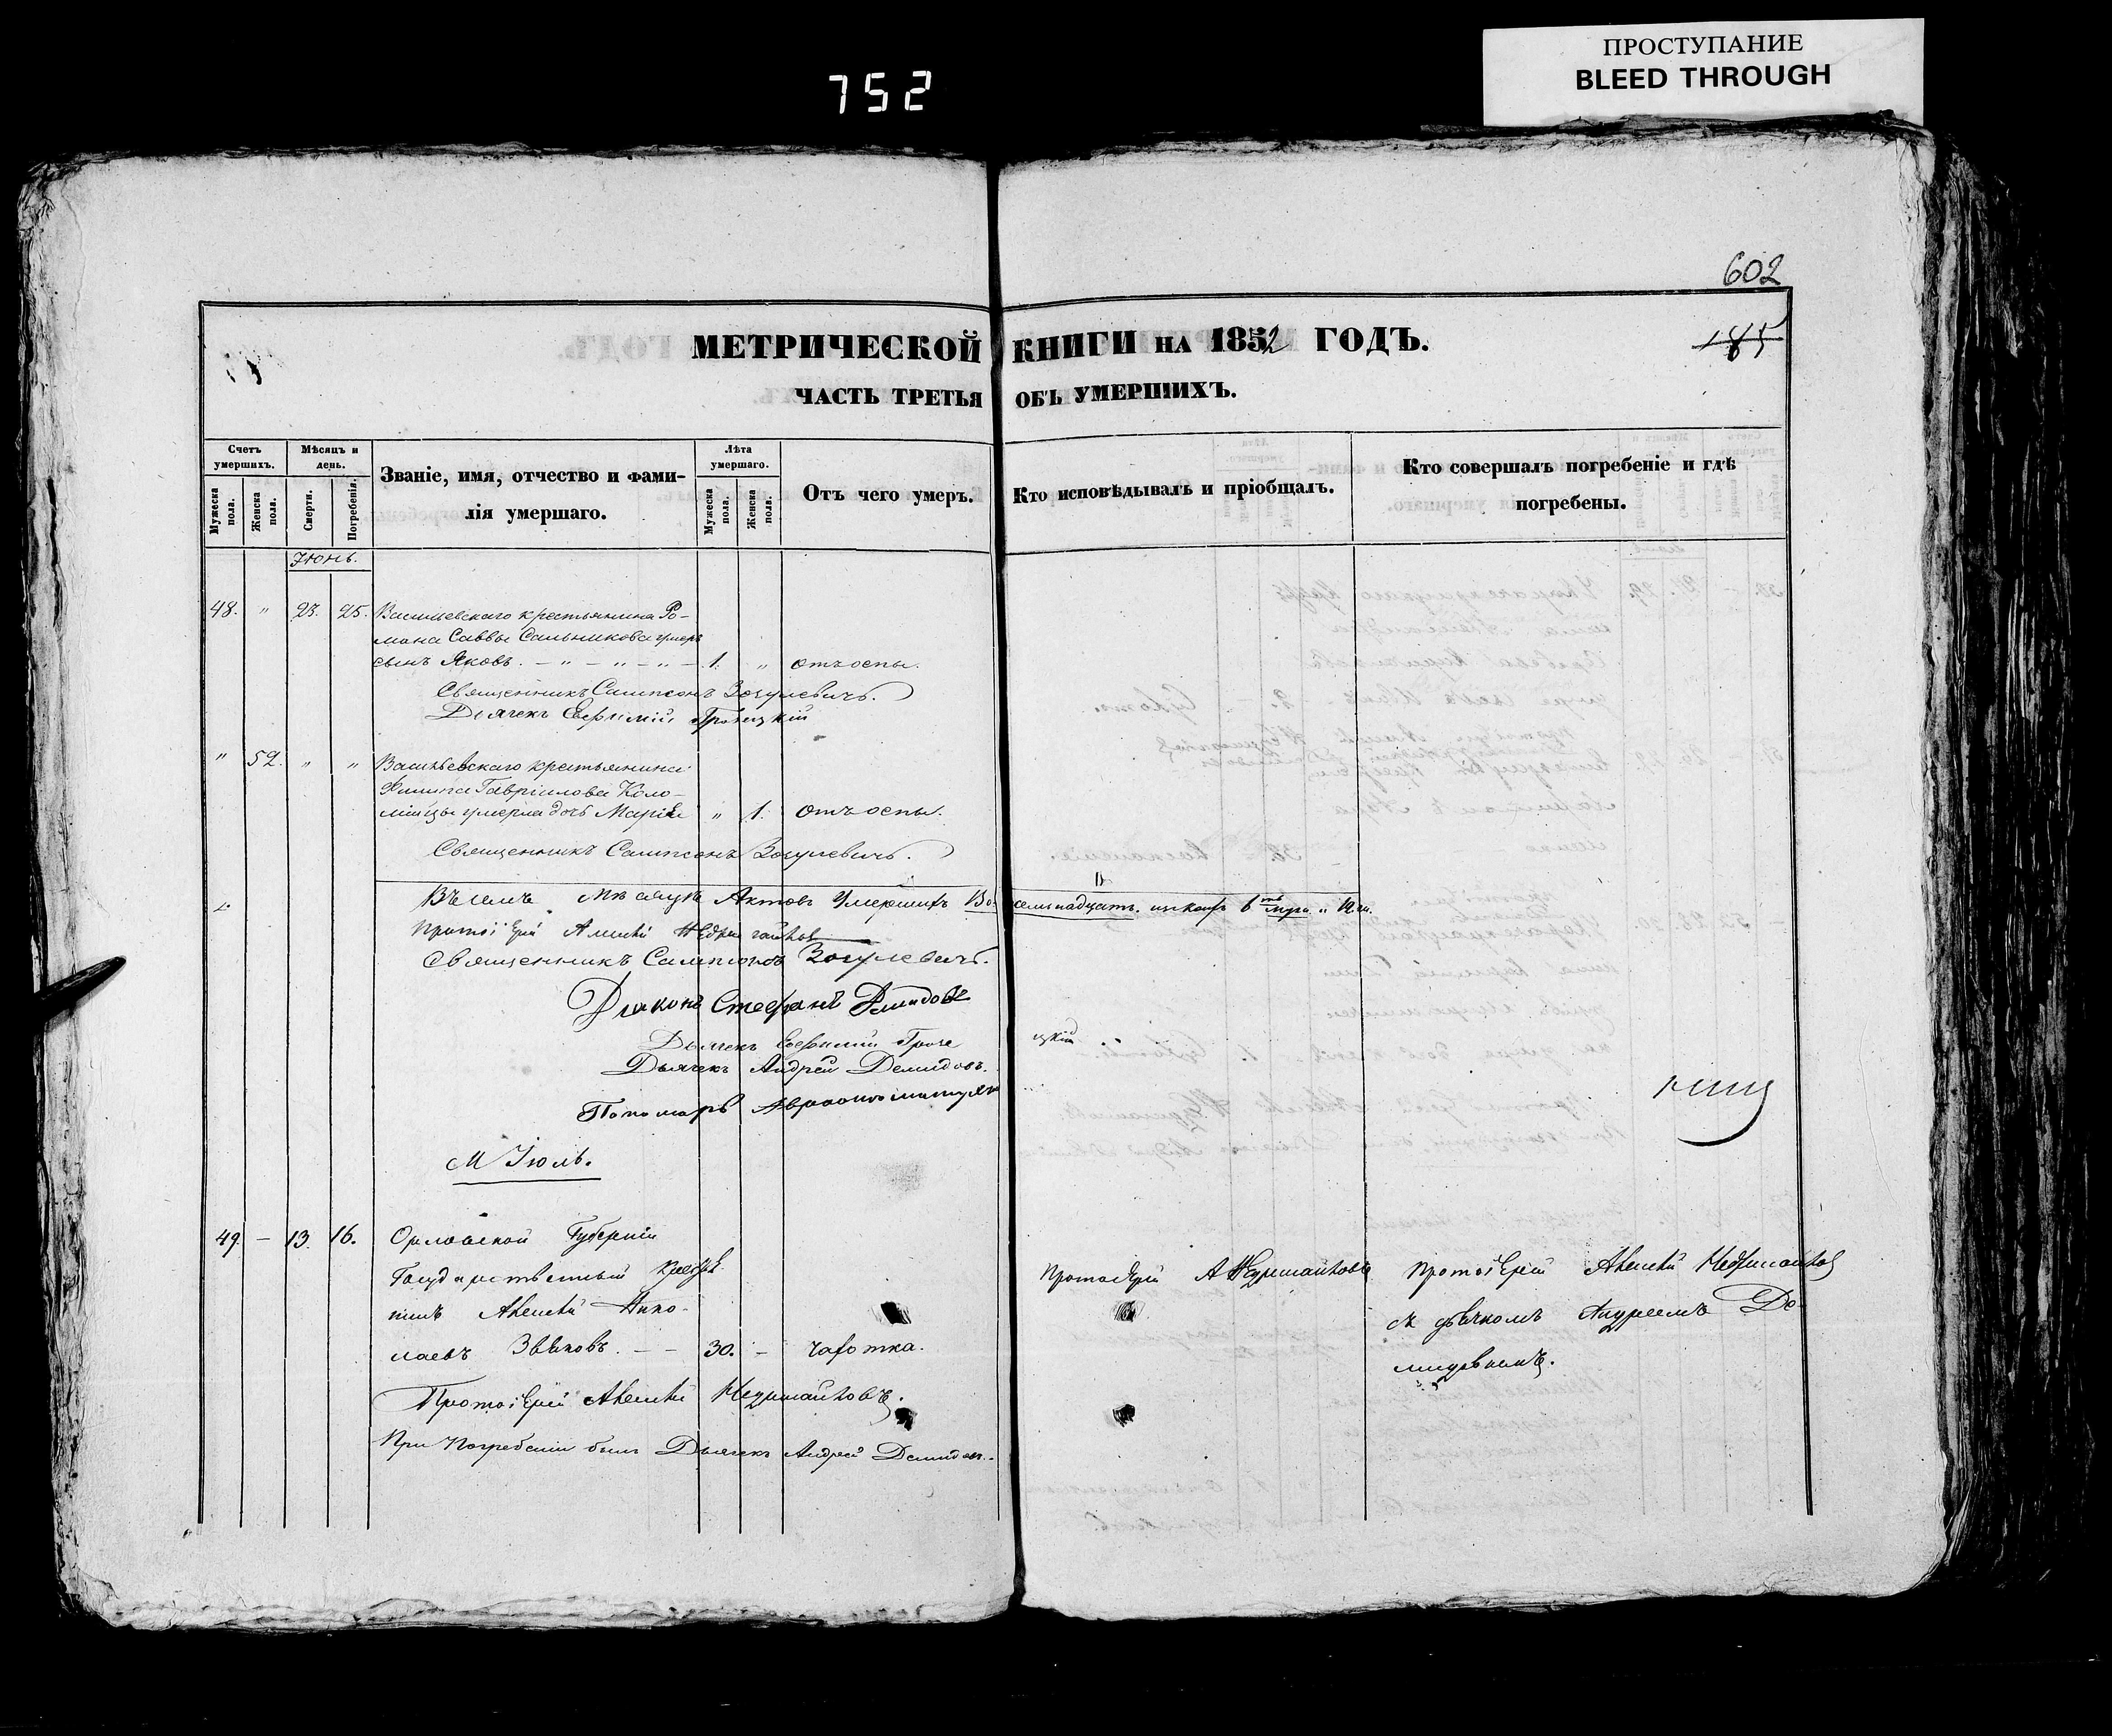 ПРОСТУПАНИЕ
BLEED THROUGH
752
602
МЕТРИЧЕСКОЙ КНИГИ НА 1852 ГОДЪ.
185
ЧАСТЬ ТРЕТЬЯ ОБЪ УМЕРШИХЪ.
Счетъ умершихъ.
Мужеска пола.
Женска пола.
Мѣсяцъ и день.
Смерти.
Погребенія.
Званіе, имя, отчество и фами-
лія умершаго.
Лѣта умершаго.
Мужеска пола.
Женска пола.
Отъ чего умеръ.
Кто исповѣдывалъ и пріобщалъ.
Кто совершалъ погребеніе и гдѣ
погребены.
Іюнь.
48. " 23. 25. Васильевскаго крестьянина Ро-
мана Саввы Сальникова умеръ
сынъ Яковъ. – " – " – " – 1. " отъ оспы.
Священникъ Сампсонъ Зосулевичъ.
Дьячекъ Евфимій
" 52. " " Васильевскаго крестьянина
Филипа Гавріилова Коло-
мійцы умерла дочь Марія " 1. отъ оспы.
Священникъ Сампсонъ Зосулевичъ.
Въ семъ мѣсяцѣ Актовъ Умершихъ Во-
семнадцать. муж. 12.
Протоіерей Алексѣй
Священникъ Сампсонъ Зосулевичъ.
Діаконъ Стефанъ
Дьячекъ Евфимій
цкій
Дьячекъ Андрей Демидовъ.
Пономарь
М Іюль.
49. – 13. 16. Орловской Губерніи
Государственный
Алексѣй Нико-
лаевъ Звѣковъ. – – 30. – чахотка.
Протоіерей А Недригайловъ
Протоіерей Алексѣй Недригайловъ
съ дьячкомъ Андреемъ Де-
мидовымъ.
Протоіерей Алексѣй Недригайловъ.
При Погребеніи былъ Дьячекъ Андрей Демидовъ.